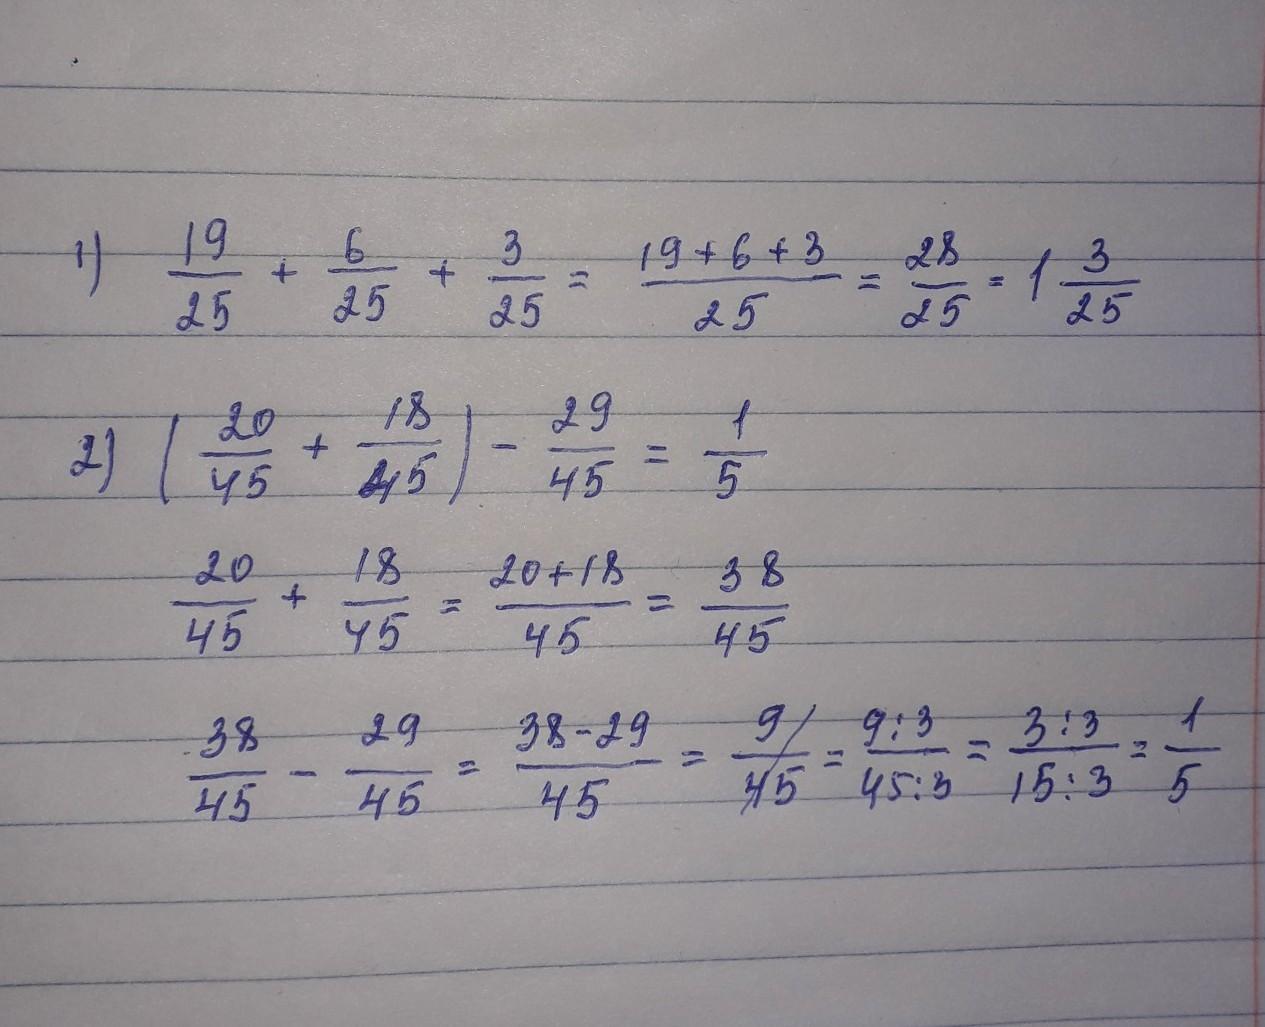 1) 19/25 + 6/25 + 3/25 = 19+6+3/25 = 28/25 = 1 3/25
2) (20/45 + 18/45) - 29/45 = 1/5
20/45 + 18/45 = 20+18/45 = 38/45
38/45 - 29/45 = 38-29/45 = 9/45 = 9:3/45:3 = 3:3/15:3 = 1/5